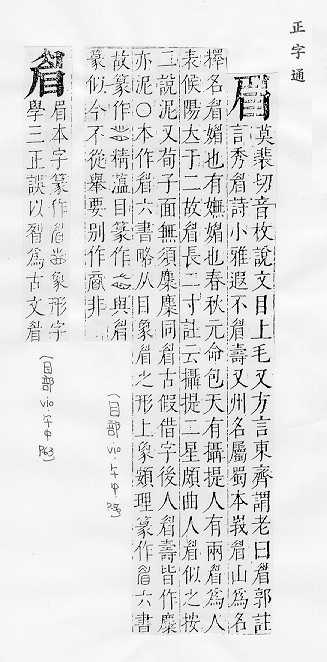 正字通
眉 莫裴切音枚說文目上毛又方言東齊謂老曰眉郭註
言秀眉詩小雅遐不眉壽又州名屬蜀本峩眉山為名
釋名眉媚也有嫵媚也春秋元命包天有攝提人有兩眉為人
表候陽大于二故眉長二寸註云攝提二星頗曲人眉似之按
二說泥又荀子面無須麋麋同眉古假借字後人眉壽皆作麋
亦泥○本作睂六書略从目象眉之形上象頟理篆作睂六書
故篆作精薀目篆作與眉
篆似今不從舉要別作非
(目部 V10.午中
睂 眉本字篆作象形字
學三正誤以為古文眉
(目部 V10.午中 P63)